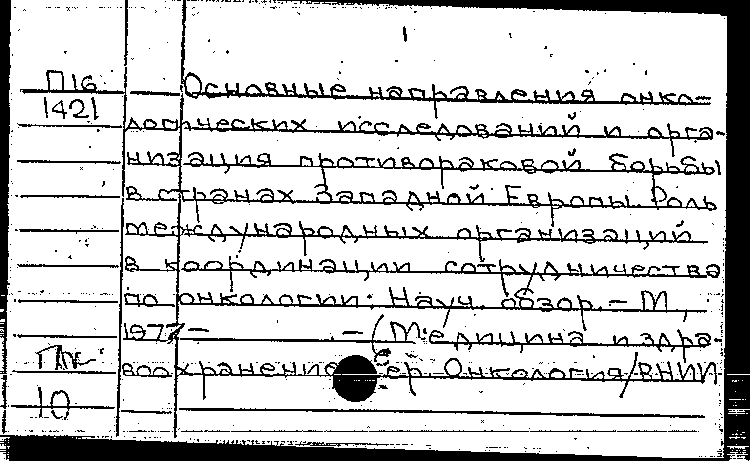 П16
1421
Основные направления онко-
логических исследований и орга-
низация противораковой борьбы
в странах Западной Европы. Роль
международных организаций
в координации сотрудничества
по онкологии: Науч. обзор. – М.,
1977 – . – (Медицина и здра-
воохранение. Сер. Онкология/ВНИИ
10